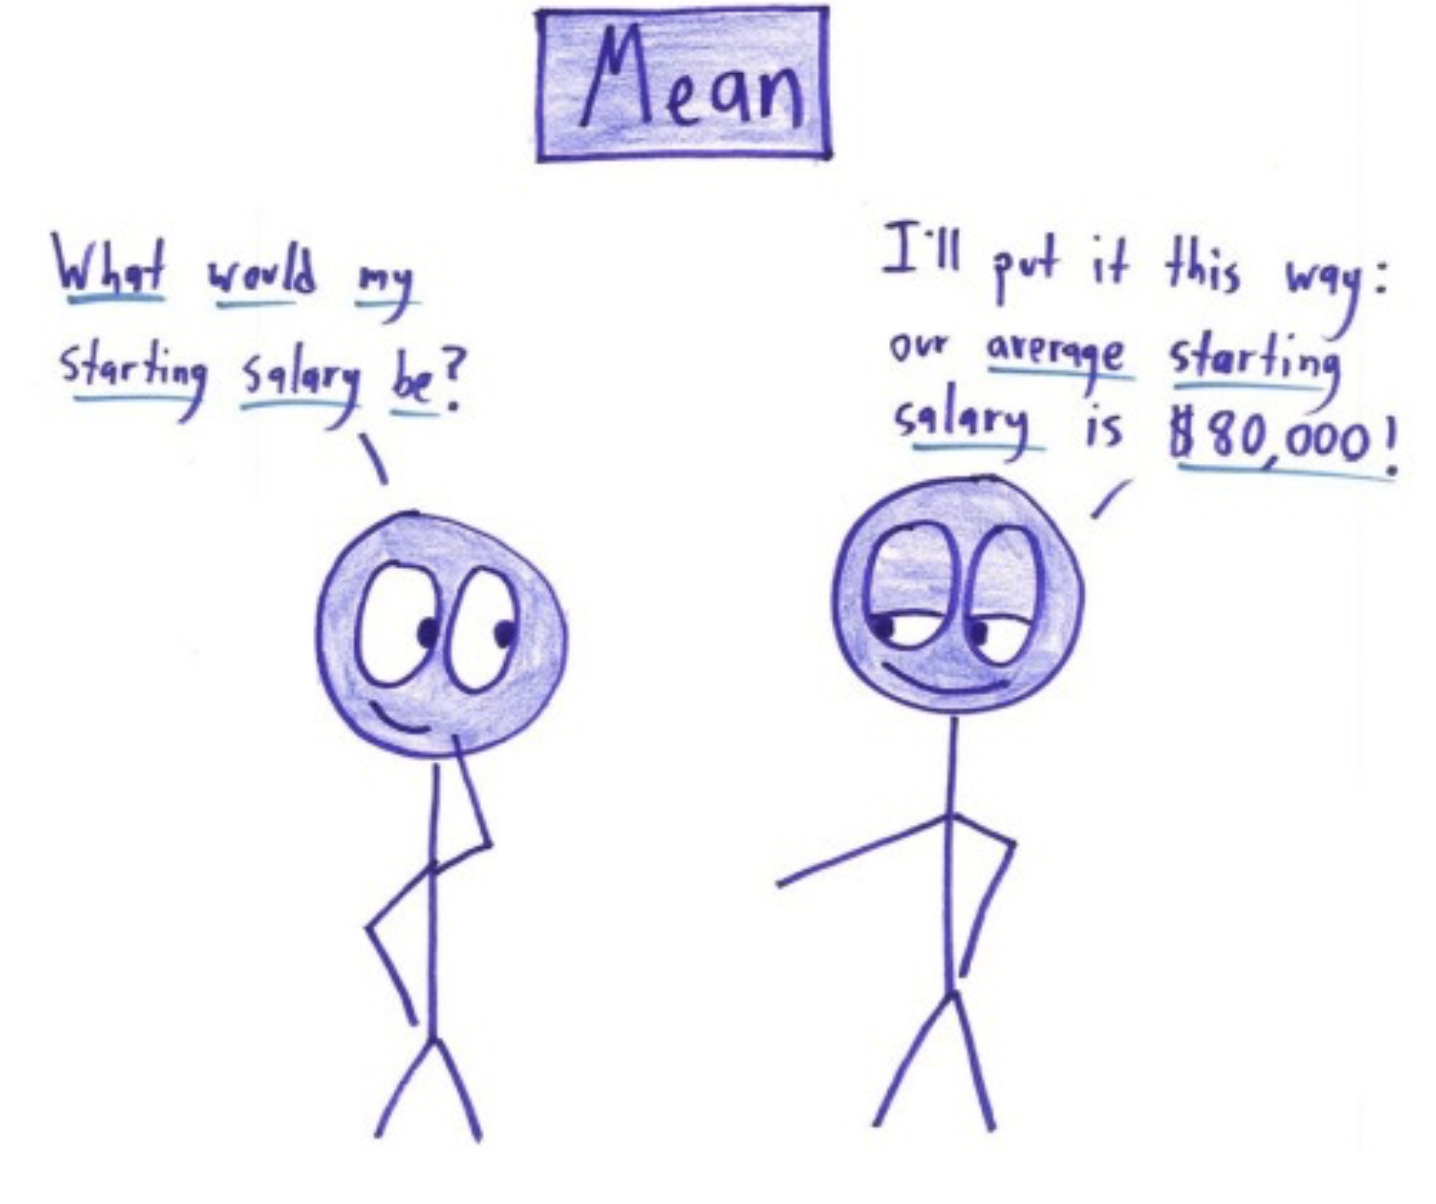 Mean
What would my
starting salary be?
I'll put it this way:
our average starting
salary is $80,000!